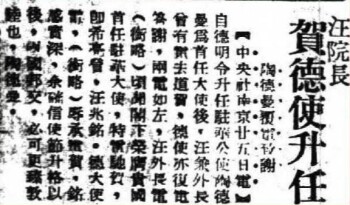 汪院長
賀德使升任
陶德曼覆電答謝
【中央社南京廿五日電】
自德明令升任駐華公使陶德
曼為首任大使後，汪兼外長
曾有電去道賀，德使亦復電
答謝，兩電如左，汪外長電
（銜略）頃閱閣下榮膺貴國
首任駐華大使，特電馳賀，
即希亮詧，汪兆銘。德大使
電，（銜略）辱承電賀，銘
感實深，余確信使節升格以
後，兩國邦交，必可更臻敦
睦也，陶德曼。